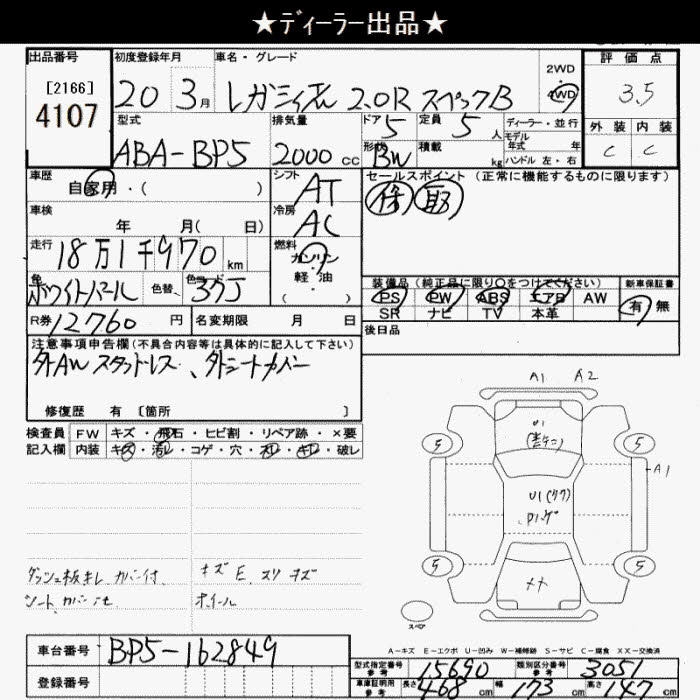 ★ディーラー出品★
出品番号 初度登録年月 車名・グレード 2WD 評価点
[2166] 20 3月 レガシィ 2.0R スペックB 4WD 3.5
4107
型式 排気量 ドア 定員 ディーラー・並行 外装 内装
ABA-BP5 2000cc 5 5人 モデル年式 年式 C C
形状 BW 積載 kg ハンドル 左・右
車歴 シフト セールスポイント (正常に機能するものに限ります)
自家用・( ) AT 保 取
車検 冷房
年 月( 日) AC
走行 燃料
18万1千970km ガソリン
色 色コード 軽・油 装備品(純正品に限り○をつけてください) 新車保証書
ホワイトパール 色替 37J ・( ) PS PW ABS エアB AW 有 無
R券 12760円 名変期限 月 日 SR ナビ TV 本革
注意事項申告欄(不具合内容等は具体的に記入して下さい) 後日品
外AW スタッドレス、外シートカバー
修復歴 有 [箇所 ]
検査員 FW キズ・飛石・ヒビ割・リペア跡・×要
記入欄 内装 キズ・汚レ・コゲ・穴・スレ・キレ・破レ
A1 A2
U1
5 5
A1
U1
5 5
XX
ダッシュ板キレ カバー付 キズ E スリキズ
シート カバー ホイール
スペア
A-キズ E-エクボ U-凹み W-補修跡 S-サビ C-腐食 XX-交換済
車台番号 BP5-162849
型式指定番号 参考 15690 類別区分番号 参考 3051
登録番号 車庫証明用 参考 長さ 468cm 幅 173cm 高さ 147cm